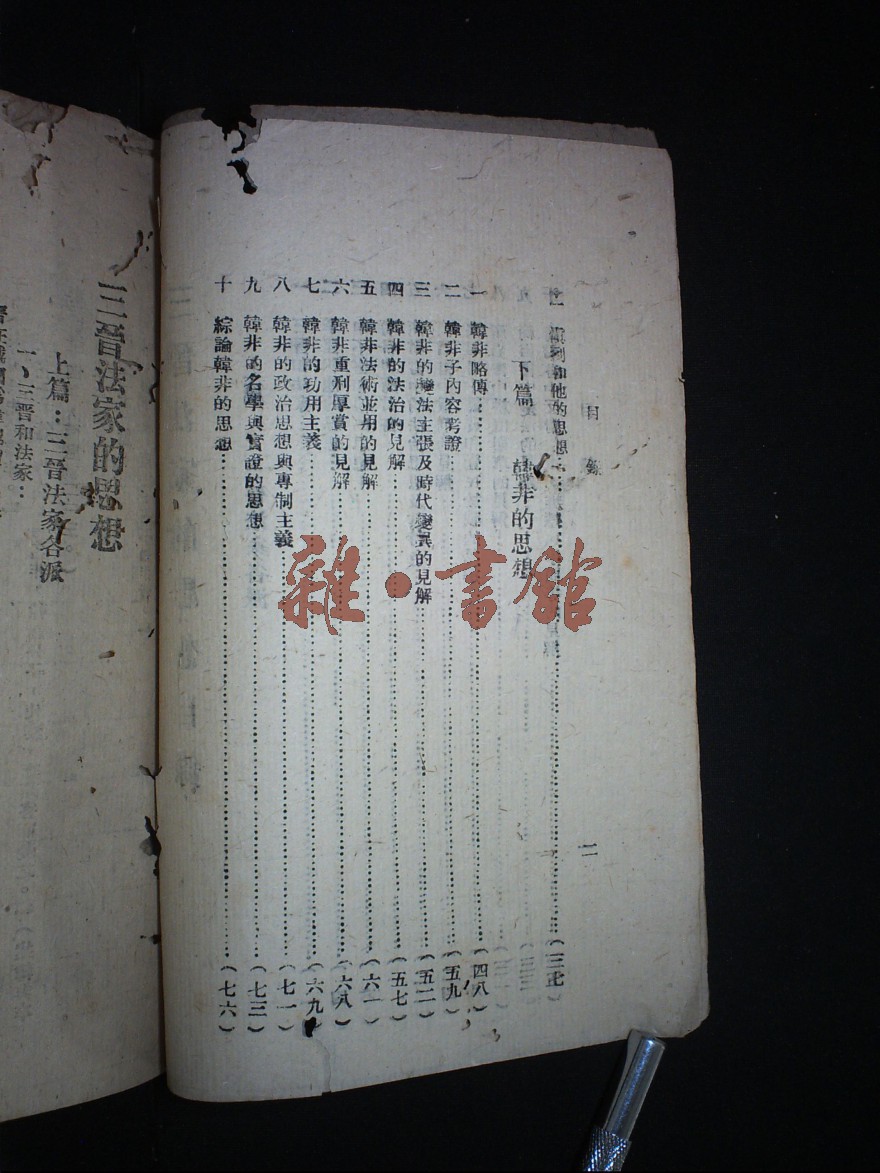 目錄
二
和他的思想……(三七)
下篇 韓非的思想
一 韓非略傳……(四八)
二 韓非子內容考證……(五九)
三 韓非的變法主張及時代變異的見解……(五二)
四 韓非的法治的見解……(五七)
五 韓非法術並用的見解……(六一)
六 韓非重刑厚賞的見解……(六八)
七 韓非的功用主義……(六九)
八 韓非的政治思想與專制主義……(七一)
九 韓非的名學與實證的思想……(七三)
十 綜論韓非的思想……(七六)
三晉法家的思想
上篇：三晉法家各派
一、三晉和法家
雜·書館